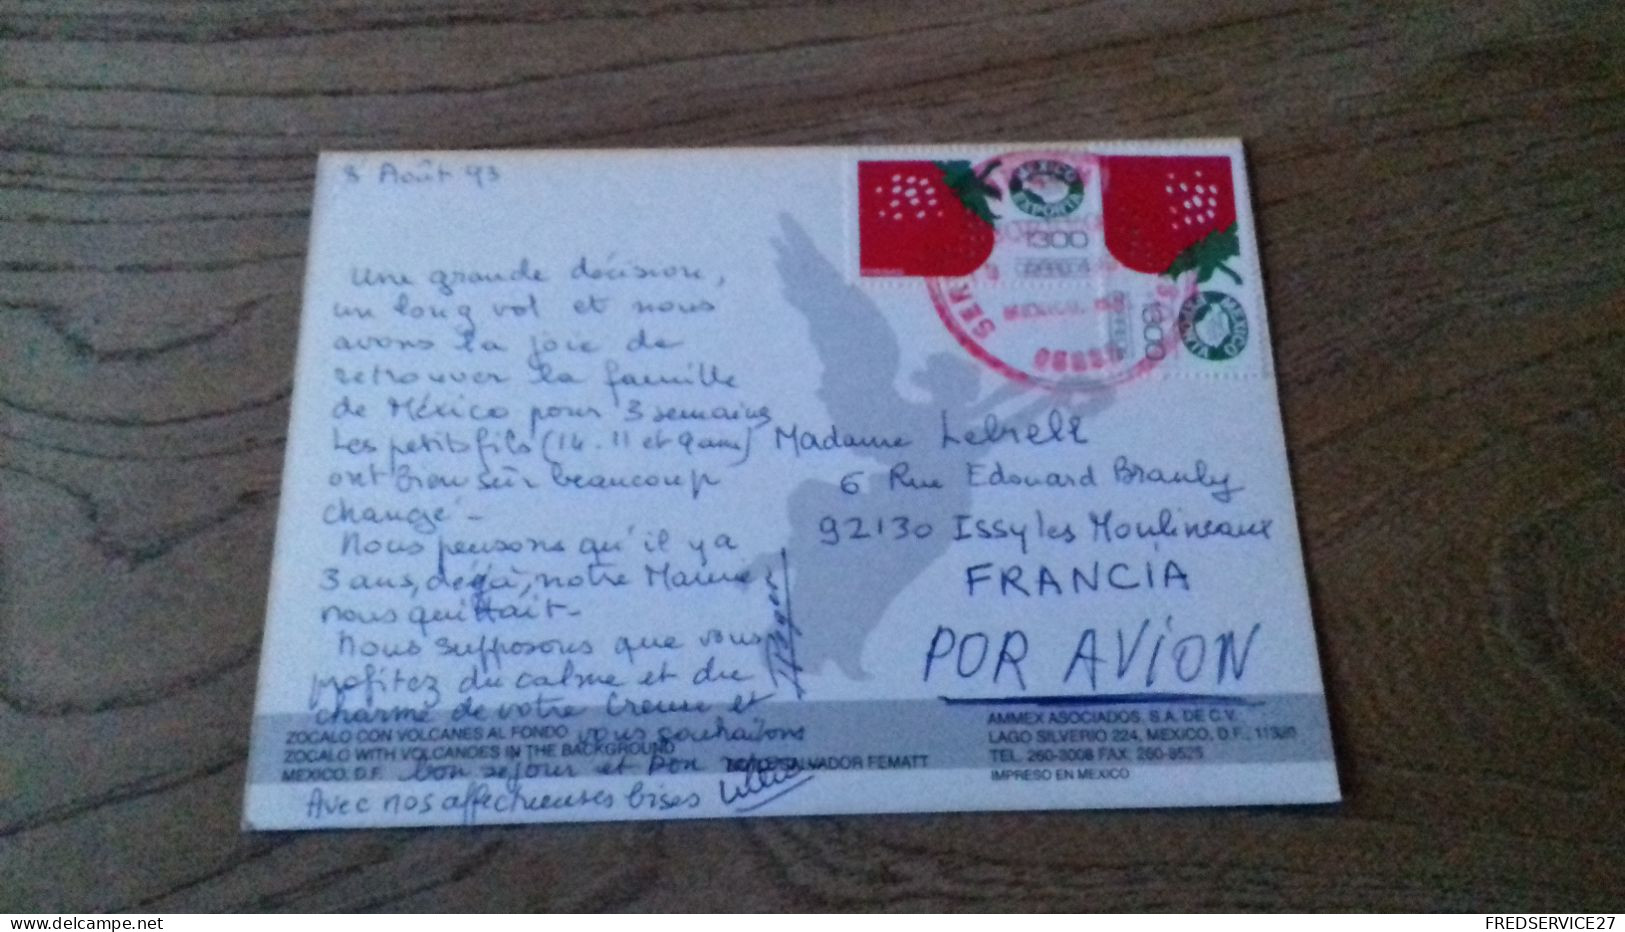 8 Août 93
Une grande décision,
un long vol et nous
avons la joie de
retrouver la famille
de México pour 3 semaines
Les petits fils (14. 11 et 9 ans)
ont bien sûr beaucoup
changé -
Nous pensons qu'il y a
3 ans, déjà, notre Mamie
nous quittait -
Nous supposons que vous
profitez du calme et du
charme de votre Creuse et
vous souhaitons
bon séjour et bon
Avec nos affectueuses bises
MEXICO EXPORTA
1300
MEXICO EXPORTA
1600
Madame
6 Rue Edouard Branly
92130 Issy les Moulineaux
FRANCIA
POR AVION
ZOCALO CON VOLCANES AL FONDO
ZOCALO WITH VOLCANOES IN THE BACKGROUND
MEXICO, D.F.
SALVADOR FEMATT
AMMEX ASOCIADOS, S.A. DE C.V.
LAGO SILVERIO 224, MEXICO, D.F., 11320
TEL. 260-3008 FAX: 260-8525
IMPRESO EN MEXICO
FREDSERVICE27